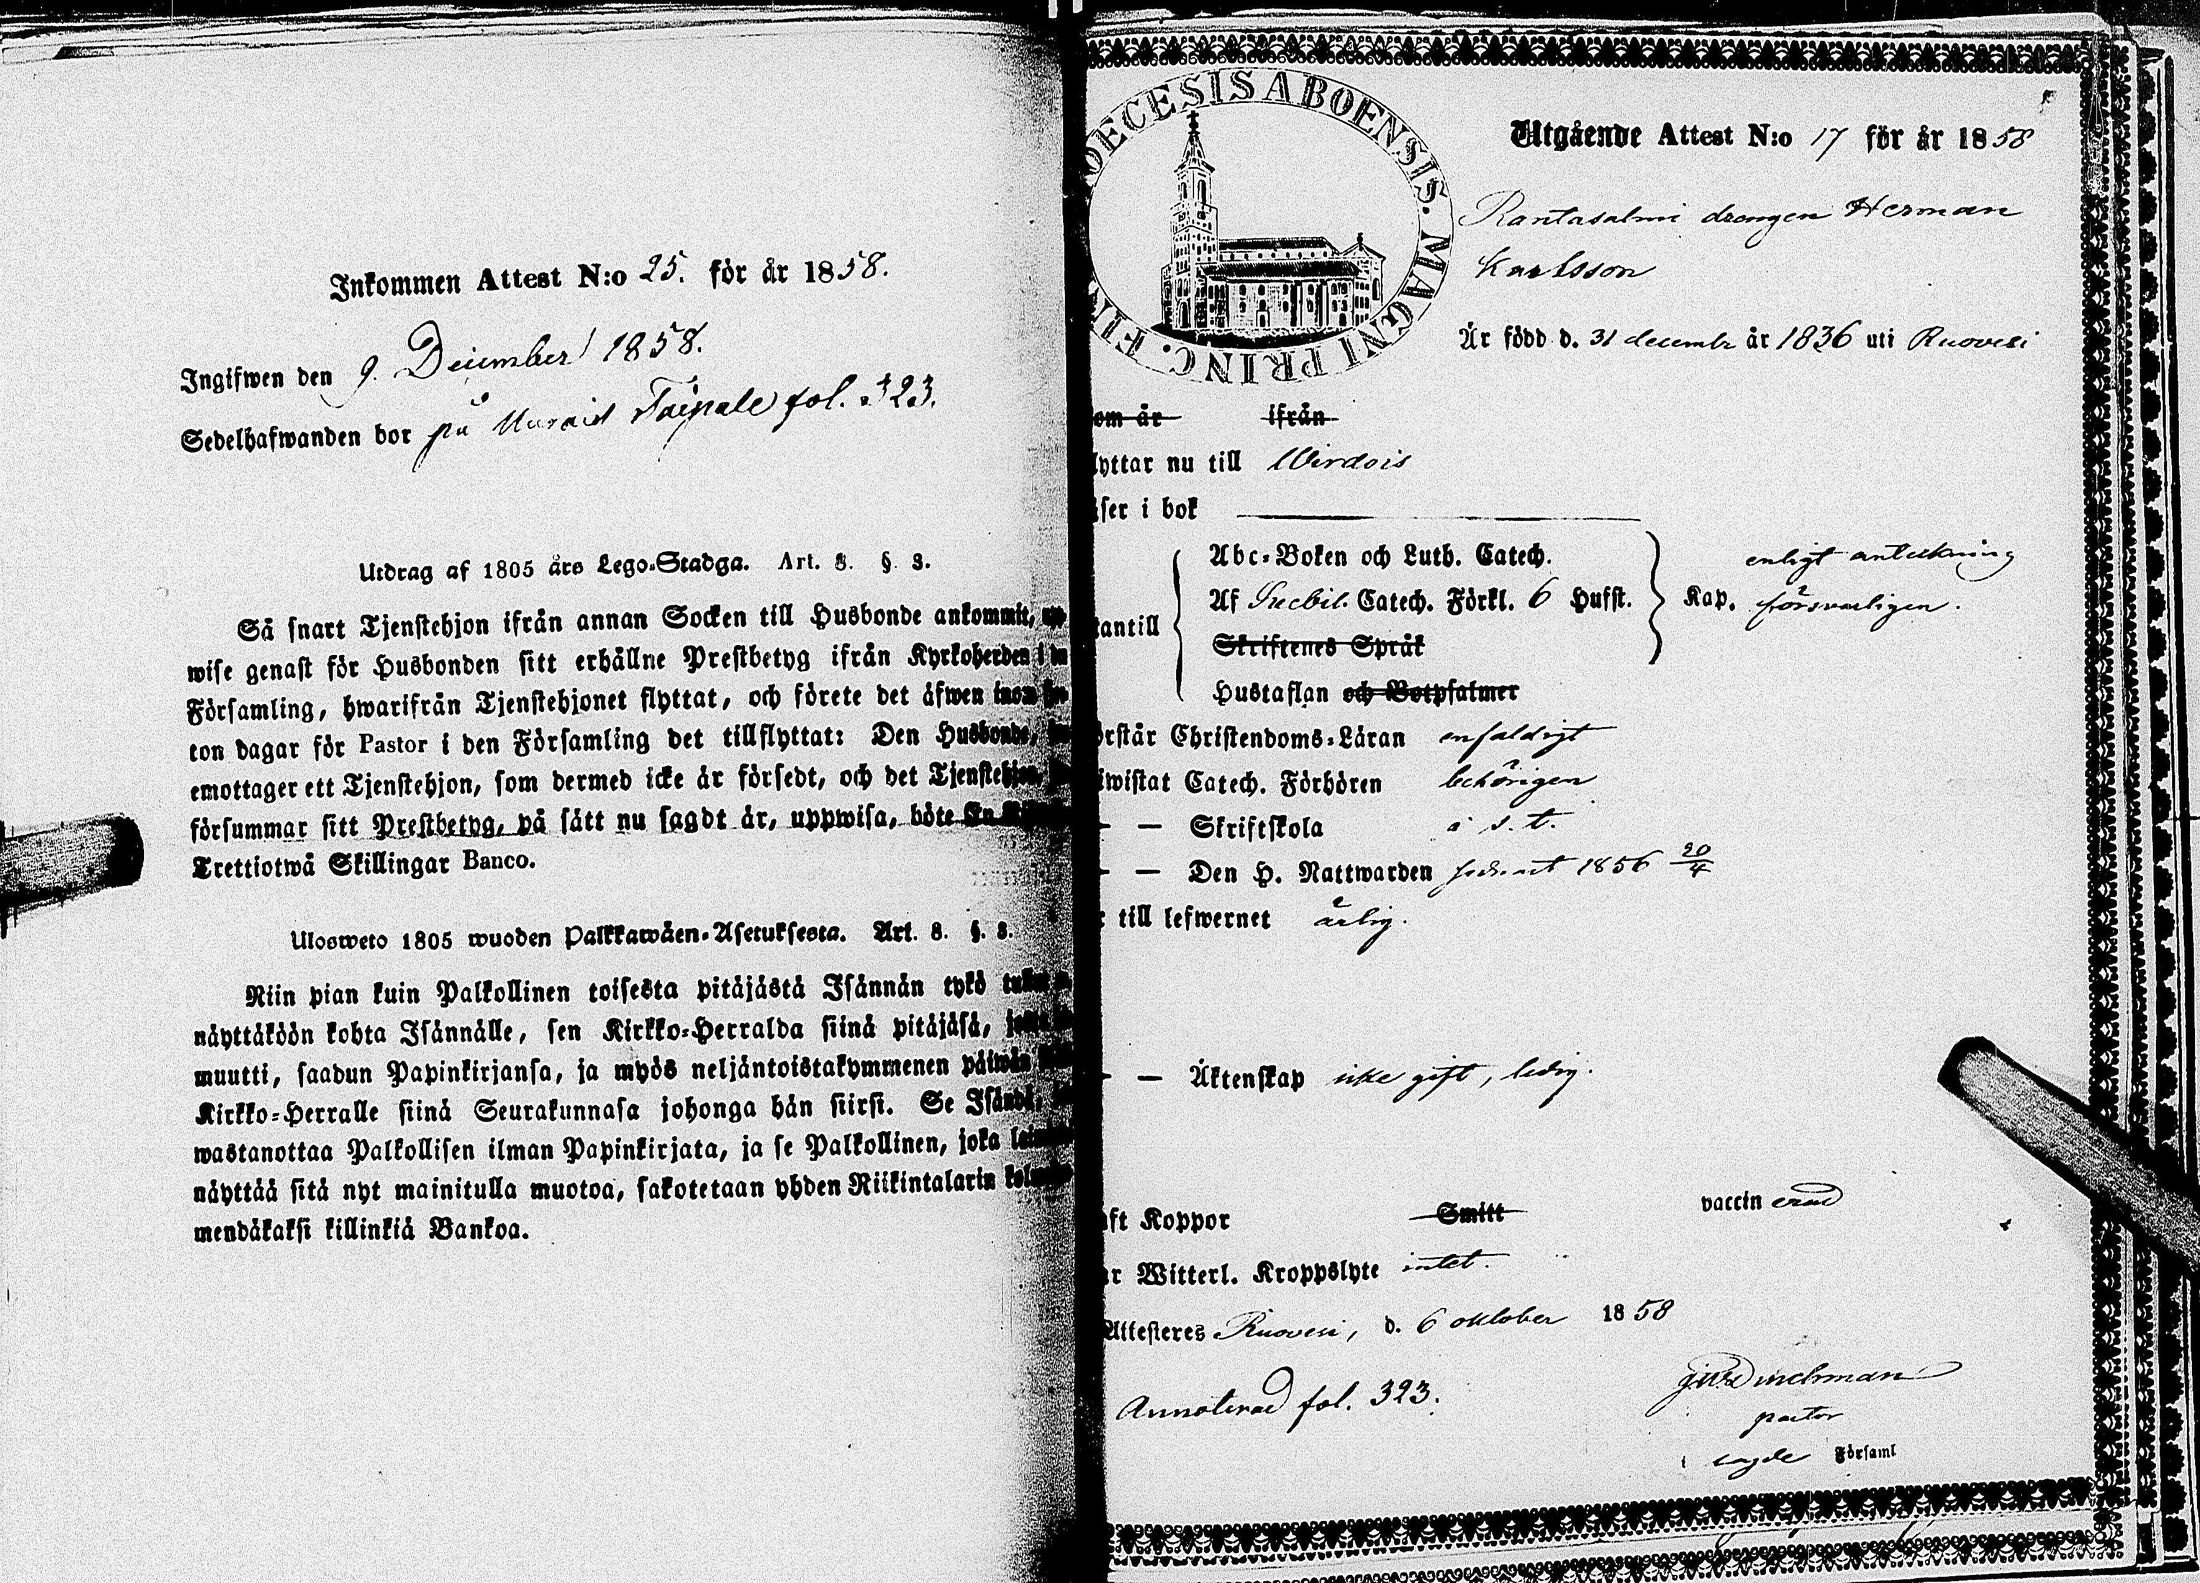 Inkommen Attest N:o 25. för år 1858.
Ingifwen den 9. December 1858.
Sedelhafwanden bor på Taipale fol. 323.
Utdrag af 1805 års Lego-Stadga. Art. 8. §. 3.
Så snart Tjenstehjon ifrån annan Socken till Husbonde ankommit,
wise genast för Husbonden sitt erhållne Prestbetyg ifrån Kyrkoherden i
Församling, hwarifrån Tjenstehjonet flyttat, och förete det äfwen inom
ton dagar för Pastor i den Församling det tillflyttat: Den Husbonde,
emottager ett Tjenstehjon, som dermed icke är försedt, och det Tjenstehjon,
försummar sitt Prestbetyg, på sätt nu sagdt är, uppwisa, böte En
Trettiotwå Skillingar Banco.
Ulosweto 1805 wuoden Palkkawäen-Asetuksesta. Art. 8. §. 3.
Niin pian kuin Palkollinen toisesta pitäjästä Isännän tykö
näyttäköön kohta Isännälle, sen Kirkko-Herralda siinä pitäjäsä,
muutti, saadun Papinkirjansa, ja myös neljäntoistakymmenen päiwän
Kirkko-Herralle siinä Seurakunnasa johonga hän siirsi. Se Isändä,
wastanottaa Palkollisen ilman Papinkirjata, ja se Palkollinen, joka
näyttää sitä nyt mainitulla muotoa, sakotetaan yhden Riikintalarin
mendäkaksi killinkiä Bankoa.
OECESIS ABOENSIS. MAGNI PRINC. FIN
Utgående Attest N:o 17 för år 1858
Rantasalmi drengen Herman
Karlsson
Är född d. 31 decembr år 1836 uti Ruovesi
om är ifrån
lyttar nu till Wirdois
äser i bok
Abc-Boken och Luth. Catech.
Af Svebil. Catech. Förkl. 6 Hufst.
Skriftenes Språk
Hustaflan och Botpsalmer
tantill
Kap.
enligt anteckning
försvarligen.
örstår Christendoms-Läran enfaldigt
iwistat Catech. Förhören behörigen
— — Skriftskola i s. t.
— — Den H. Nattwarden sednast 1856 20/4
r till lefwernet ärlig.
— — Äktenskap icke gift, ledig.
aft Koppor Smitt vaccinerad
ar Witterl. Kroppslyte intet.
Attesteres Ruovesi, d. 6 oktober 1858
Annoterad fol. 323.
pastor
i sagde Församl